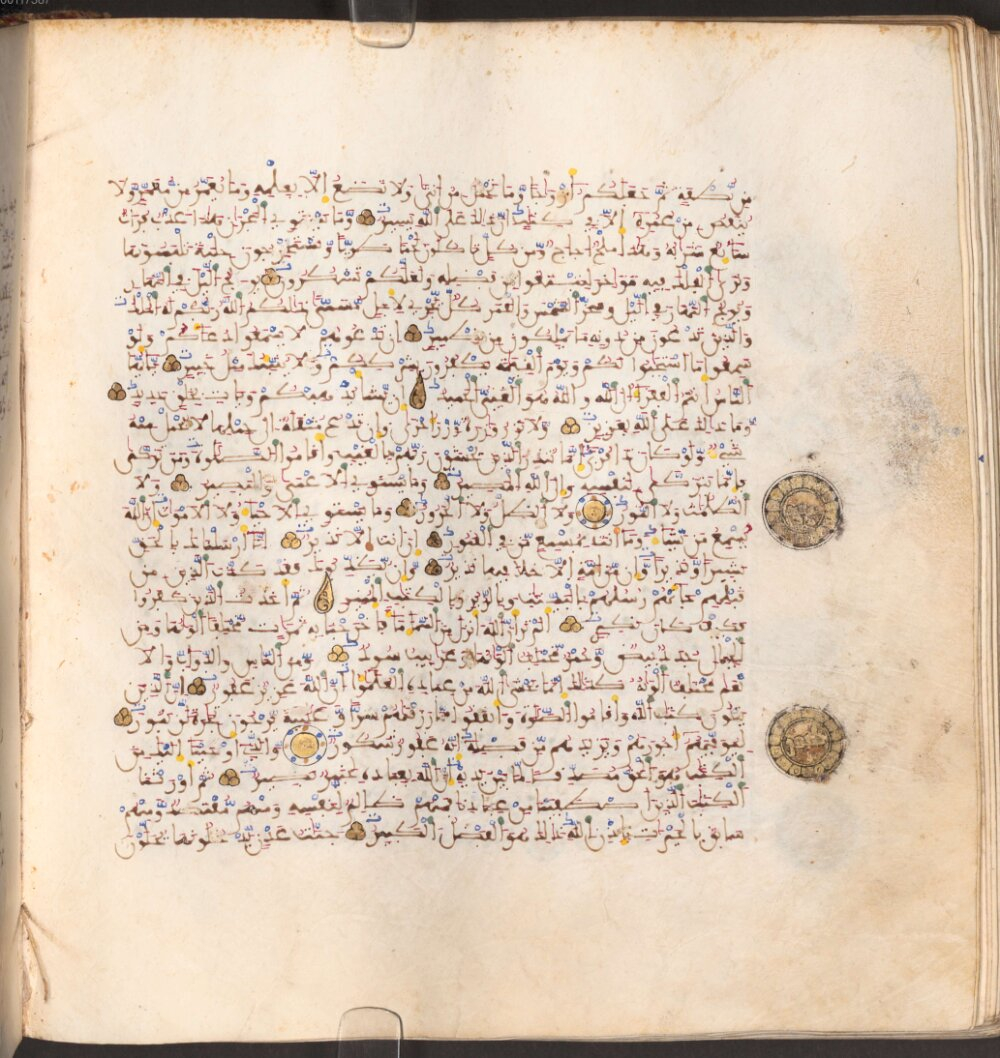 من نطفة ثم جعلكم أزواجا وما تحمل من أنثى ولا تضع إلا بعلمه وما يعمر من معمر ولا
ينقص من عمره إلا في كتب إن ذلك على الله يسير وما يستوي البحران هذا عذب فرات
سائغ شرابه وهذا ملح أجاج ومن كل تأكلون لحما طريا وتستخرجون حلية تلبسونها
وترى الفلك فيه مواخر لتبتغوا من فضله ولعلكم تشكرون يولج اليل في النهار
ويولج النهار في اليل وسخر الشمس والقمر كل يجري لأجل مسمى ذلكم الله ربكم له الملك
والذين تدعون من دونه ما يملكون من قطمير إن تدعوهم لا يسمعوا دعاءكم ولو
سمعوا ما استجابوا لكم ويوم القيمة يكفرون بشرككم ولا ينبئك مثل خبير يأيها
الناس أنتم الفقراء إلى الله والله هو الغني الحميد إن يشأ يذهبكم ويأت بخلق جديد
وما ذلك على الله بعزيز ولا تزر وازرة وزر أخرى وإن تدع مثقلة إلى حملها لا يحمل منه
شيء ولو كان ذا قربى إنما تنذر الذين يخشون ربهم بالغيب وأقاموا الصلوة ومن تزكى
فإنما يتزكى لنفسه وإلى الله المصير وما يستوي الأعمى والبصير ولا
الظلمت ولا النور ولا الظل ولا الحرور وما يستوي الأحياء ولا الأموت إن الله
يسمع من يشاء وما أنت بمسمع من في القبور إن أنت إلا نذير إنا أرسلنك بالحق
بشيرا ونذيرا وإن من أمة إلا خلا فيها نذير وإن يكذبوك فقد كذب الذين من
قبلهم جاءتهم رسلهم بالبينت وبالزبر وبالكتب المنير ثم أخذت الذين كفروا
فكيف كان نكير ألم تر أن الله أنزل من السماء ماء فأخرجنا به ثمرت مختلفا ألوانها ومن
الجبال جدد بيض وحمر مختلف ألوانها وغرابيب سود ومن الناس والدواب والا
نعم مختلف ألوانه كذلك إنما يخشى الله من عباده العلمؤا إن الله عزيز غفور إن الذين
يتلون كتب الله وأقاموا الصلوة وأنفقوا مما رزقنهم سرا وعلنية يرجون تجرة لن تبور
ليوفيهم أجورهم ويزيدهم من فضله إنه غفور شكور والذي أوحينا إليك من
الكتب هو الحق مصدقا لما بين يديه إن الله بعباده لخبير بصير ثم أورثنا
الكتب الذين اصطفينا من عبادنا فمنهم ظالم لنفسه ومنهم مقتصد ومنهم
سابق بالخيرات بإذن الله ذلك هو الفضل الكبير جنت عدن يدخلونها يحلون